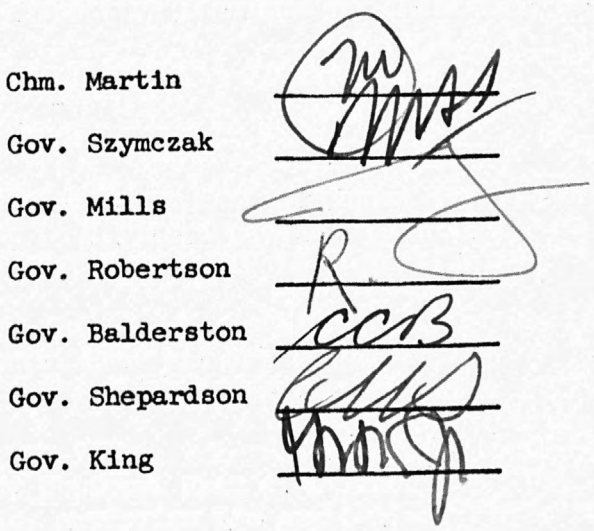 Chm. Martin
Gov. Szymczak
Gov. Mills
Gov. Robertson R.
Gov. Balderston CCB
Gov. Shepardson
Gov. King